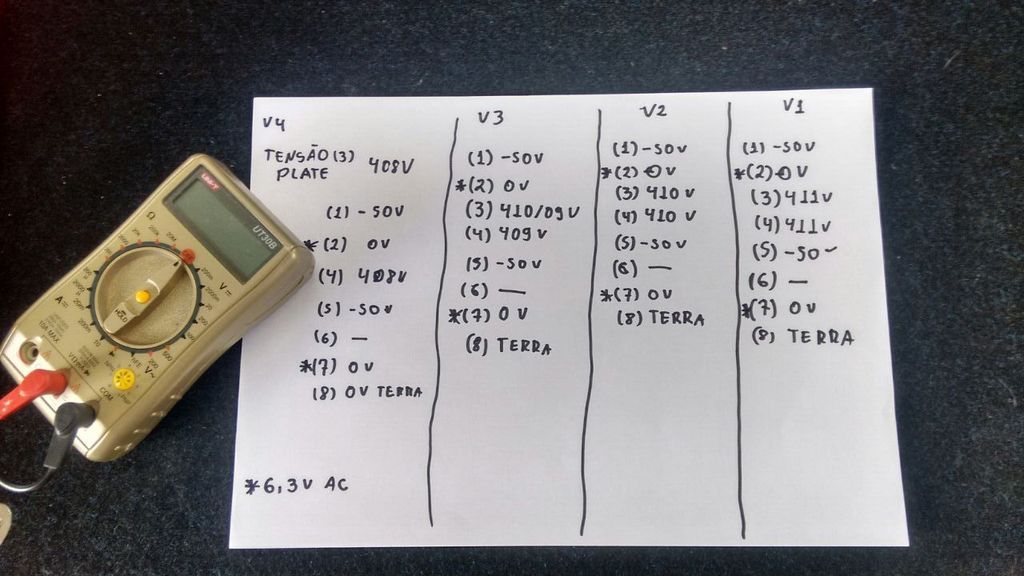 V4
TENSÃO (3)
PLATE 408V
(1) -50V
*(2) 0V
(4) 408V
(5) -50V
(6) —
*(7) 0V
(8) 0V TERRA
*6,3V AC
V3
(1) -50V
*(2) 0V
(3) 410/09V
(4) 409V
(5) -50V
(6) —
*(7) 0V
(8) TERRA
V2
(1) -50V
*(2) 0V
(3) 410V
(4) 410V
(5) -50V
(6) —
*(7) 0V
(8) TERRA
V1
(1) -50V
*(2) 0V
(3) 411V
(4) 411V
(5) -50
(6) —
*(7) 0V
(8) TERRA
UNI-T
UT30B
Ω
V⎓
A⎓
HOLD
10A MAX
COM
hFE
V~